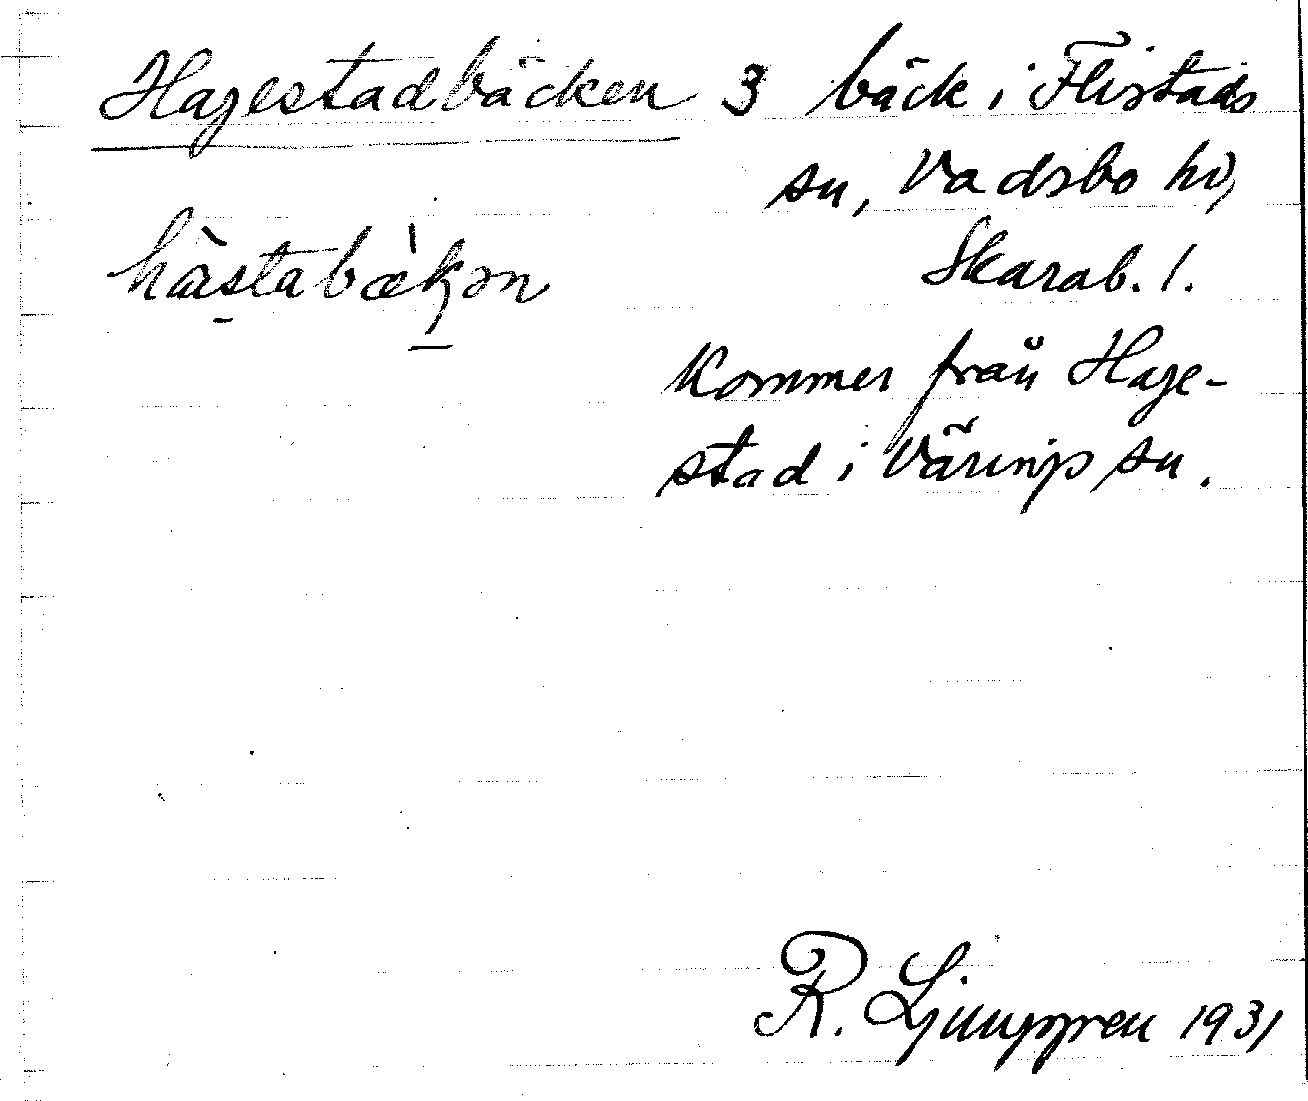 Hagestadbäcken 3 bäck i Flistads
sn, Vadsbo hd,
Skarab. l.
hàstabækən
Kommer från Hage-
stad i Värings sn.
R. Ljunggren 1931